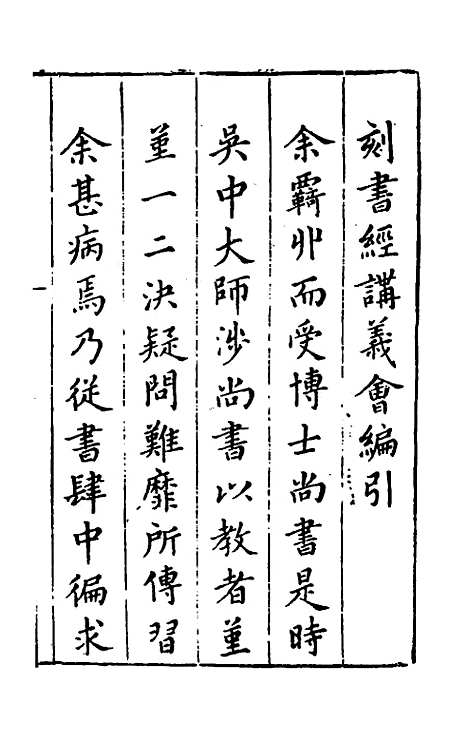 刻書經講義會編引
余覊丱而受博士尚書是時
吳中大師涉尚書以教者堇
堇一二決疑問難靡所傳習
余甚病焉乃從書肆中徧求